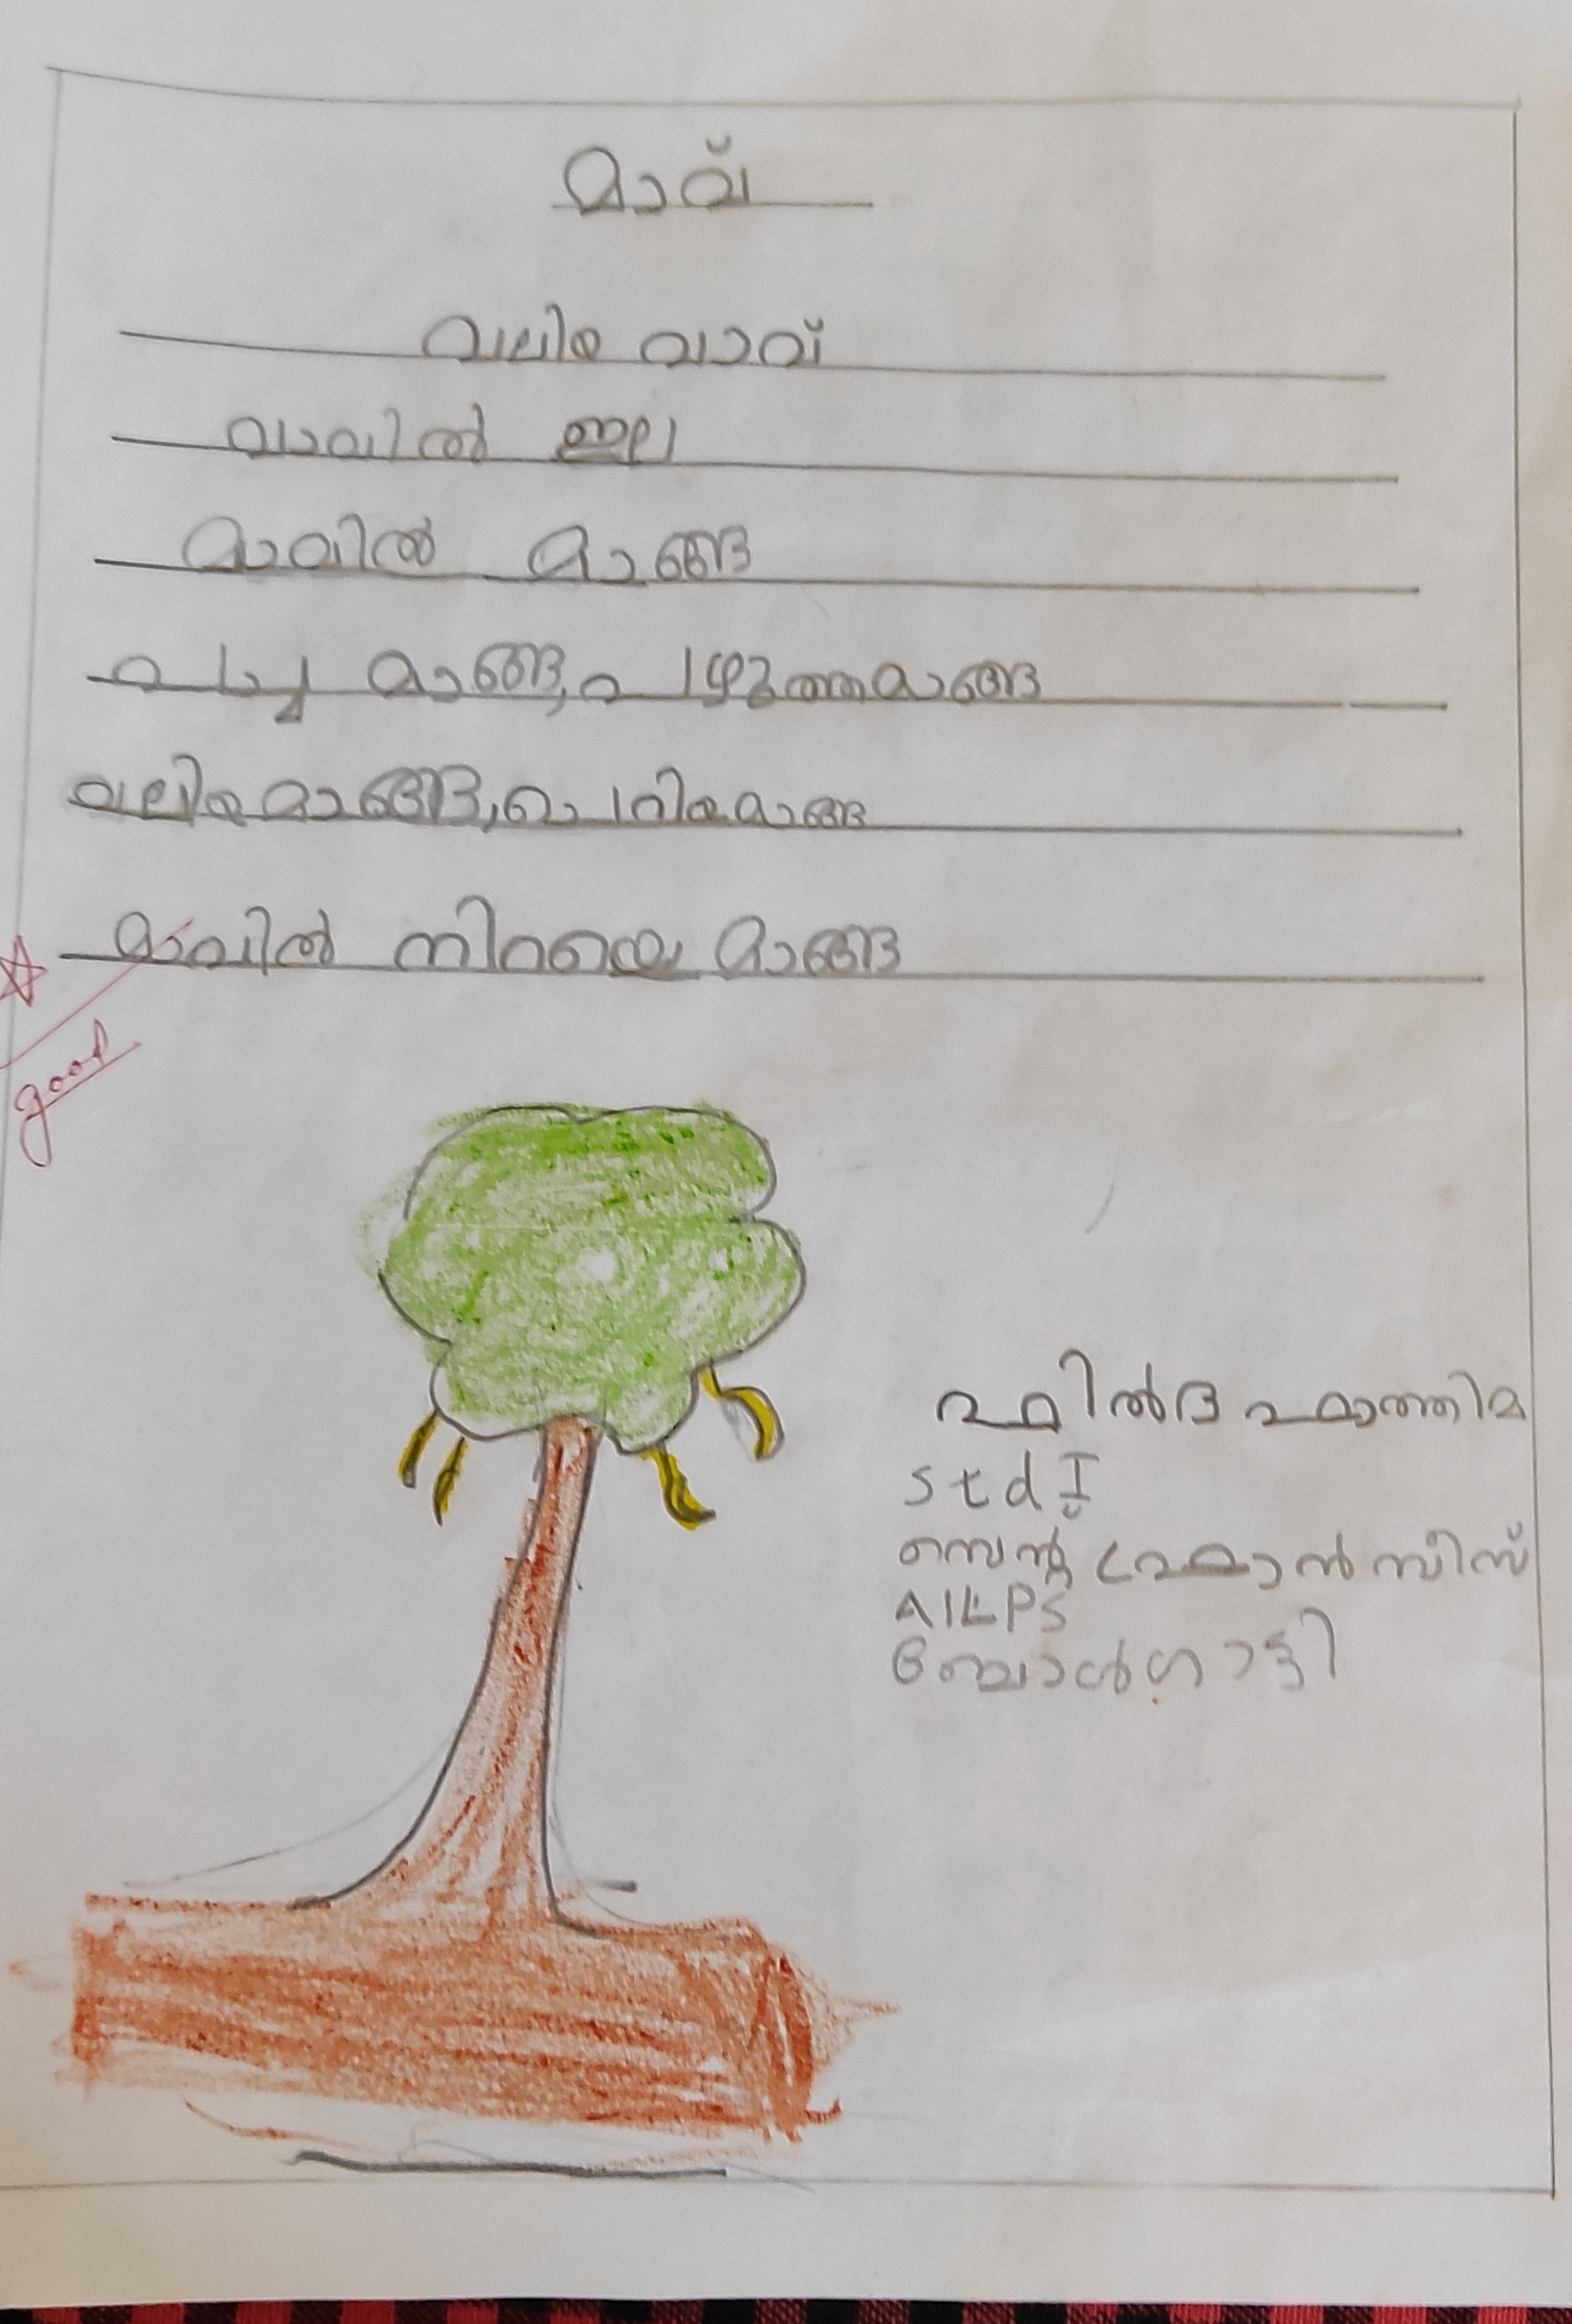 മാവ്
വലിയ മാവ്
മാവിൽ ഇല
മാവിൽ മാങ്ങ
പച്ച മാങ്ങ, പഴുത്തമാങ്ങ
വലിയമാങ്ങ, ചെറിയമാങ്ങ
മാവിൽ നിറയെ മാങ്ങ
good
ഫിൽദ ഫാത്തിമ
std I
സെന്റ് ഫ്രാൻസീസ്
AILPS
ബോൾഗാട്ടി